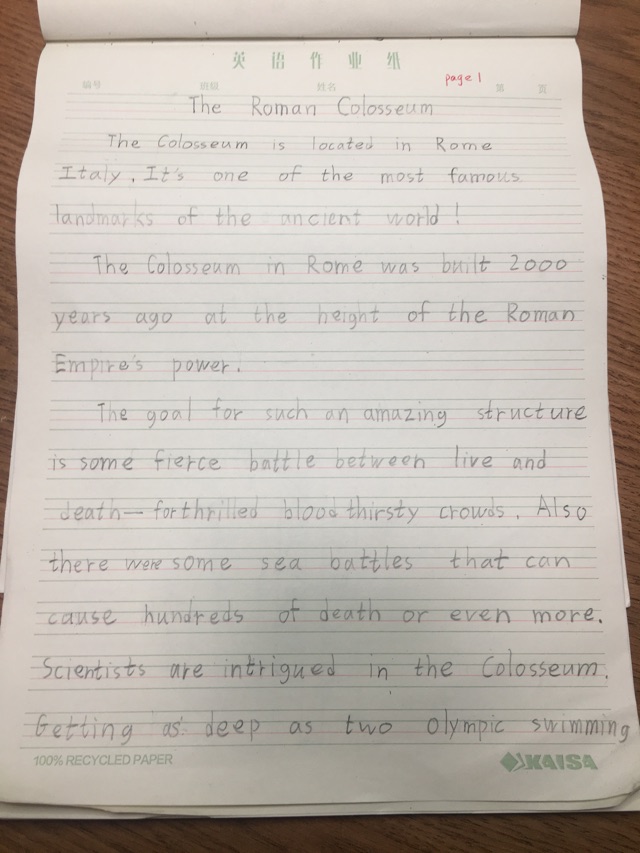 英语作业纸
编号 班级 姓名 page 1 第 页
The Roman Colosseum
The Colosseum is located in Rome
Italy. It's one of the most famous
landmarks of the ancient world!
The Colosseum in Rome was built 2000
years ago at the height of the Roman
Empire's power.
The goal for such an amazing structure
is some fierce battle between live and
death— for thrilled blood thirsty crowds. Also
there were some sea battles that can
cause hundreds of death or even more.
Scientists are intrigued in the Colosseum.
Getting as deep as two olympic swimming
100% RECYCLED PAPER KAISA